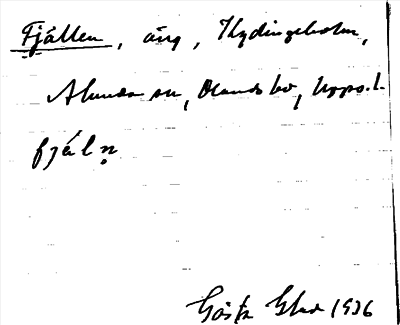 Fjällen, äng, Hydingeholm,
Alunda sn, Olands hd, Upps.l.
fjäl ṇ
Gösta Glad 1936